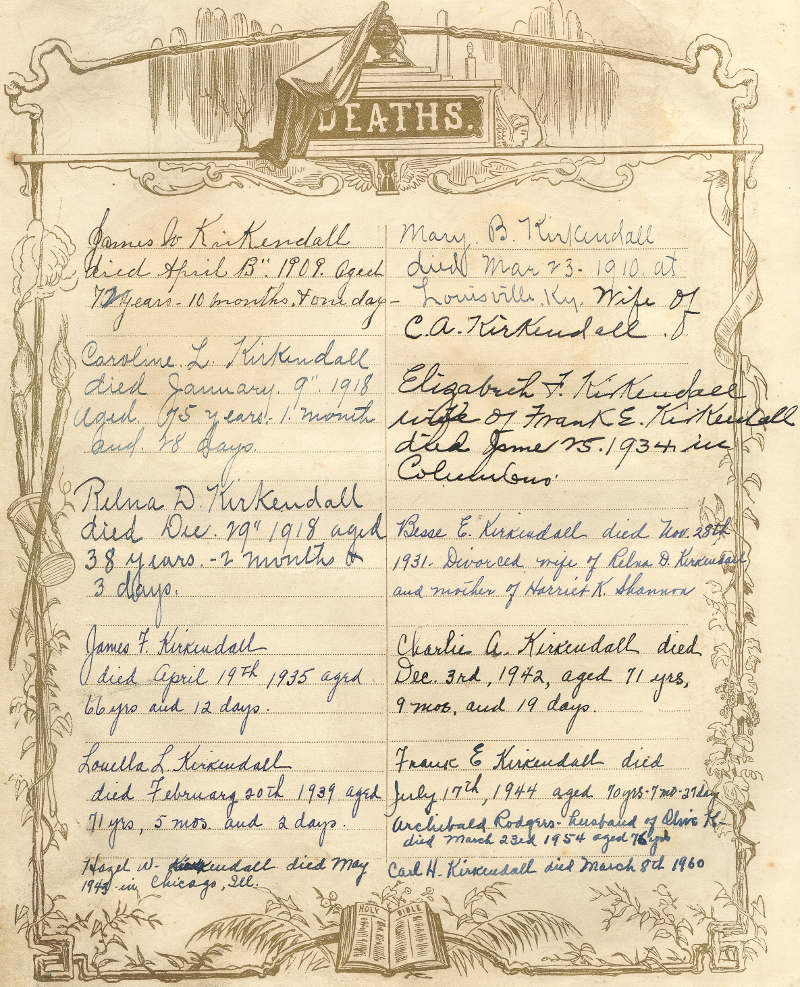 DEATHS.
James W Kirkendall
died April 13". 1909. aged
72 years - 10 months. + one day -
Caroline. L. Kirkendall
died January. 9". 1918
aged 75 years. 1. month
and. 28 days.
Relna D. Kirkendall
died Dec. 29" 1918 aged
38 years. - 2 months &
3 days.
James F. Kirkendall
died April 19th 1935 aged
66 yrs and 12 days.
Louella L. Kirkendall
died February 20th 1939 aged
71 yrs, 5 mos. and 2 days.
Hazel W. Kirkendall died May
in Chicago, Ill.
Mary. B. Kirkendall
died Mar 23 - 1910. at
Louisville. Ky. Wife of
C.A. Kirkendall.
Elizabeth F. Kirkendall
wife of Frank E. Kirkendall
died June 25. 1934 in
Columbus.
Besse E. Kirkendall died Nov. 28th
1931. Divorced wife of Relna D. Kirkendall
and mother of Harriet K. Shannon
Charlie A. Kirkendall died
Dec. 3rd, 1942, aged 71 yrs,
9 mos, and 19 days.
Frank E Kirkendall died
July 17th, 1944 aged 70 yrs - 7 mo - 27 day
Archibald Rodgers - husband of Olive K -
died March 23rd 1954 aged 76 yrs
Carl H. Kirkendall died March 8th 1960
HOLY BIBLE